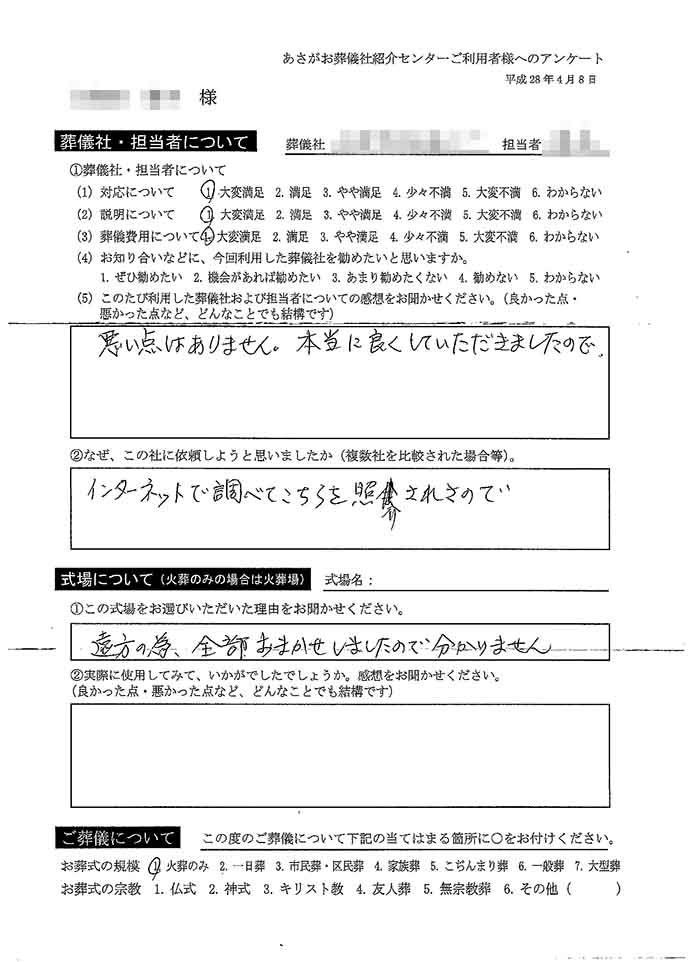 あさがお葬儀社紹介センターご利用者様へのアンケート
平成28年4月8日
様
葬儀社・担当者について 葬儀社 担当者
①葬儀社・担当者について
(1) 対応について 1. 大変満足 2. 満足 3. やや満足 4. 少々不満 5. 大変不満 6. わからない
(2) 説明について 1. 大変満足 2. 満足 3. やや満足 4. 少々不満 5. 大変不満 6. わからない
(3) 葬儀費用について 1. 大変満足 2. 満足 3. やや満足 4. 少々不満 5. 大変不満 6. わからない
(4) お知り合いなどに、今回利用した葬儀社を勧めたいと思いますか。
1. ぜひ勧めたい 2. 機会があれば勧めたい 3. あまり勧めたくない 4. 勧めない 5. わからない
(5) このたび利用した葬儀社および担当者についての感想をお聞かせください。(良かった点・
悪かった点など、どんなことでも結構です)
悪い点はありません。本当に良くしていただきましたので、
②なぜ、この社に依頼しようと思いましたか(複数社を比較された場合等)。
インターネットで調べてこちらを照介されさので
式場について(火葬のみの場合は火葬場) 式場名:
①この式場をお選びいただいた理由をお聞かせください。
遠方の為、全部おまかせしましたので分かりません
②実際に使用してみて、いかがでしたでしょうか。感想をお聞かせください。
(良かった点・悪かった点など、どんなことでも結構です)
ご葬儀について この度のご葬儀について下記の当てはまる箇所に○をお付けください。
お葬式の規模 1. 火葬のみ 2. 一日葬 3. 市民葬・区民葬 4. 家族葬 5. こぢんまり葬 6. 一般葬 7. 大型葬
お葬式の宗教 1. 仏式 2. 神式 3. キリスト教 4. 友人葬 5. 無宗教葬 6. その他 ( )